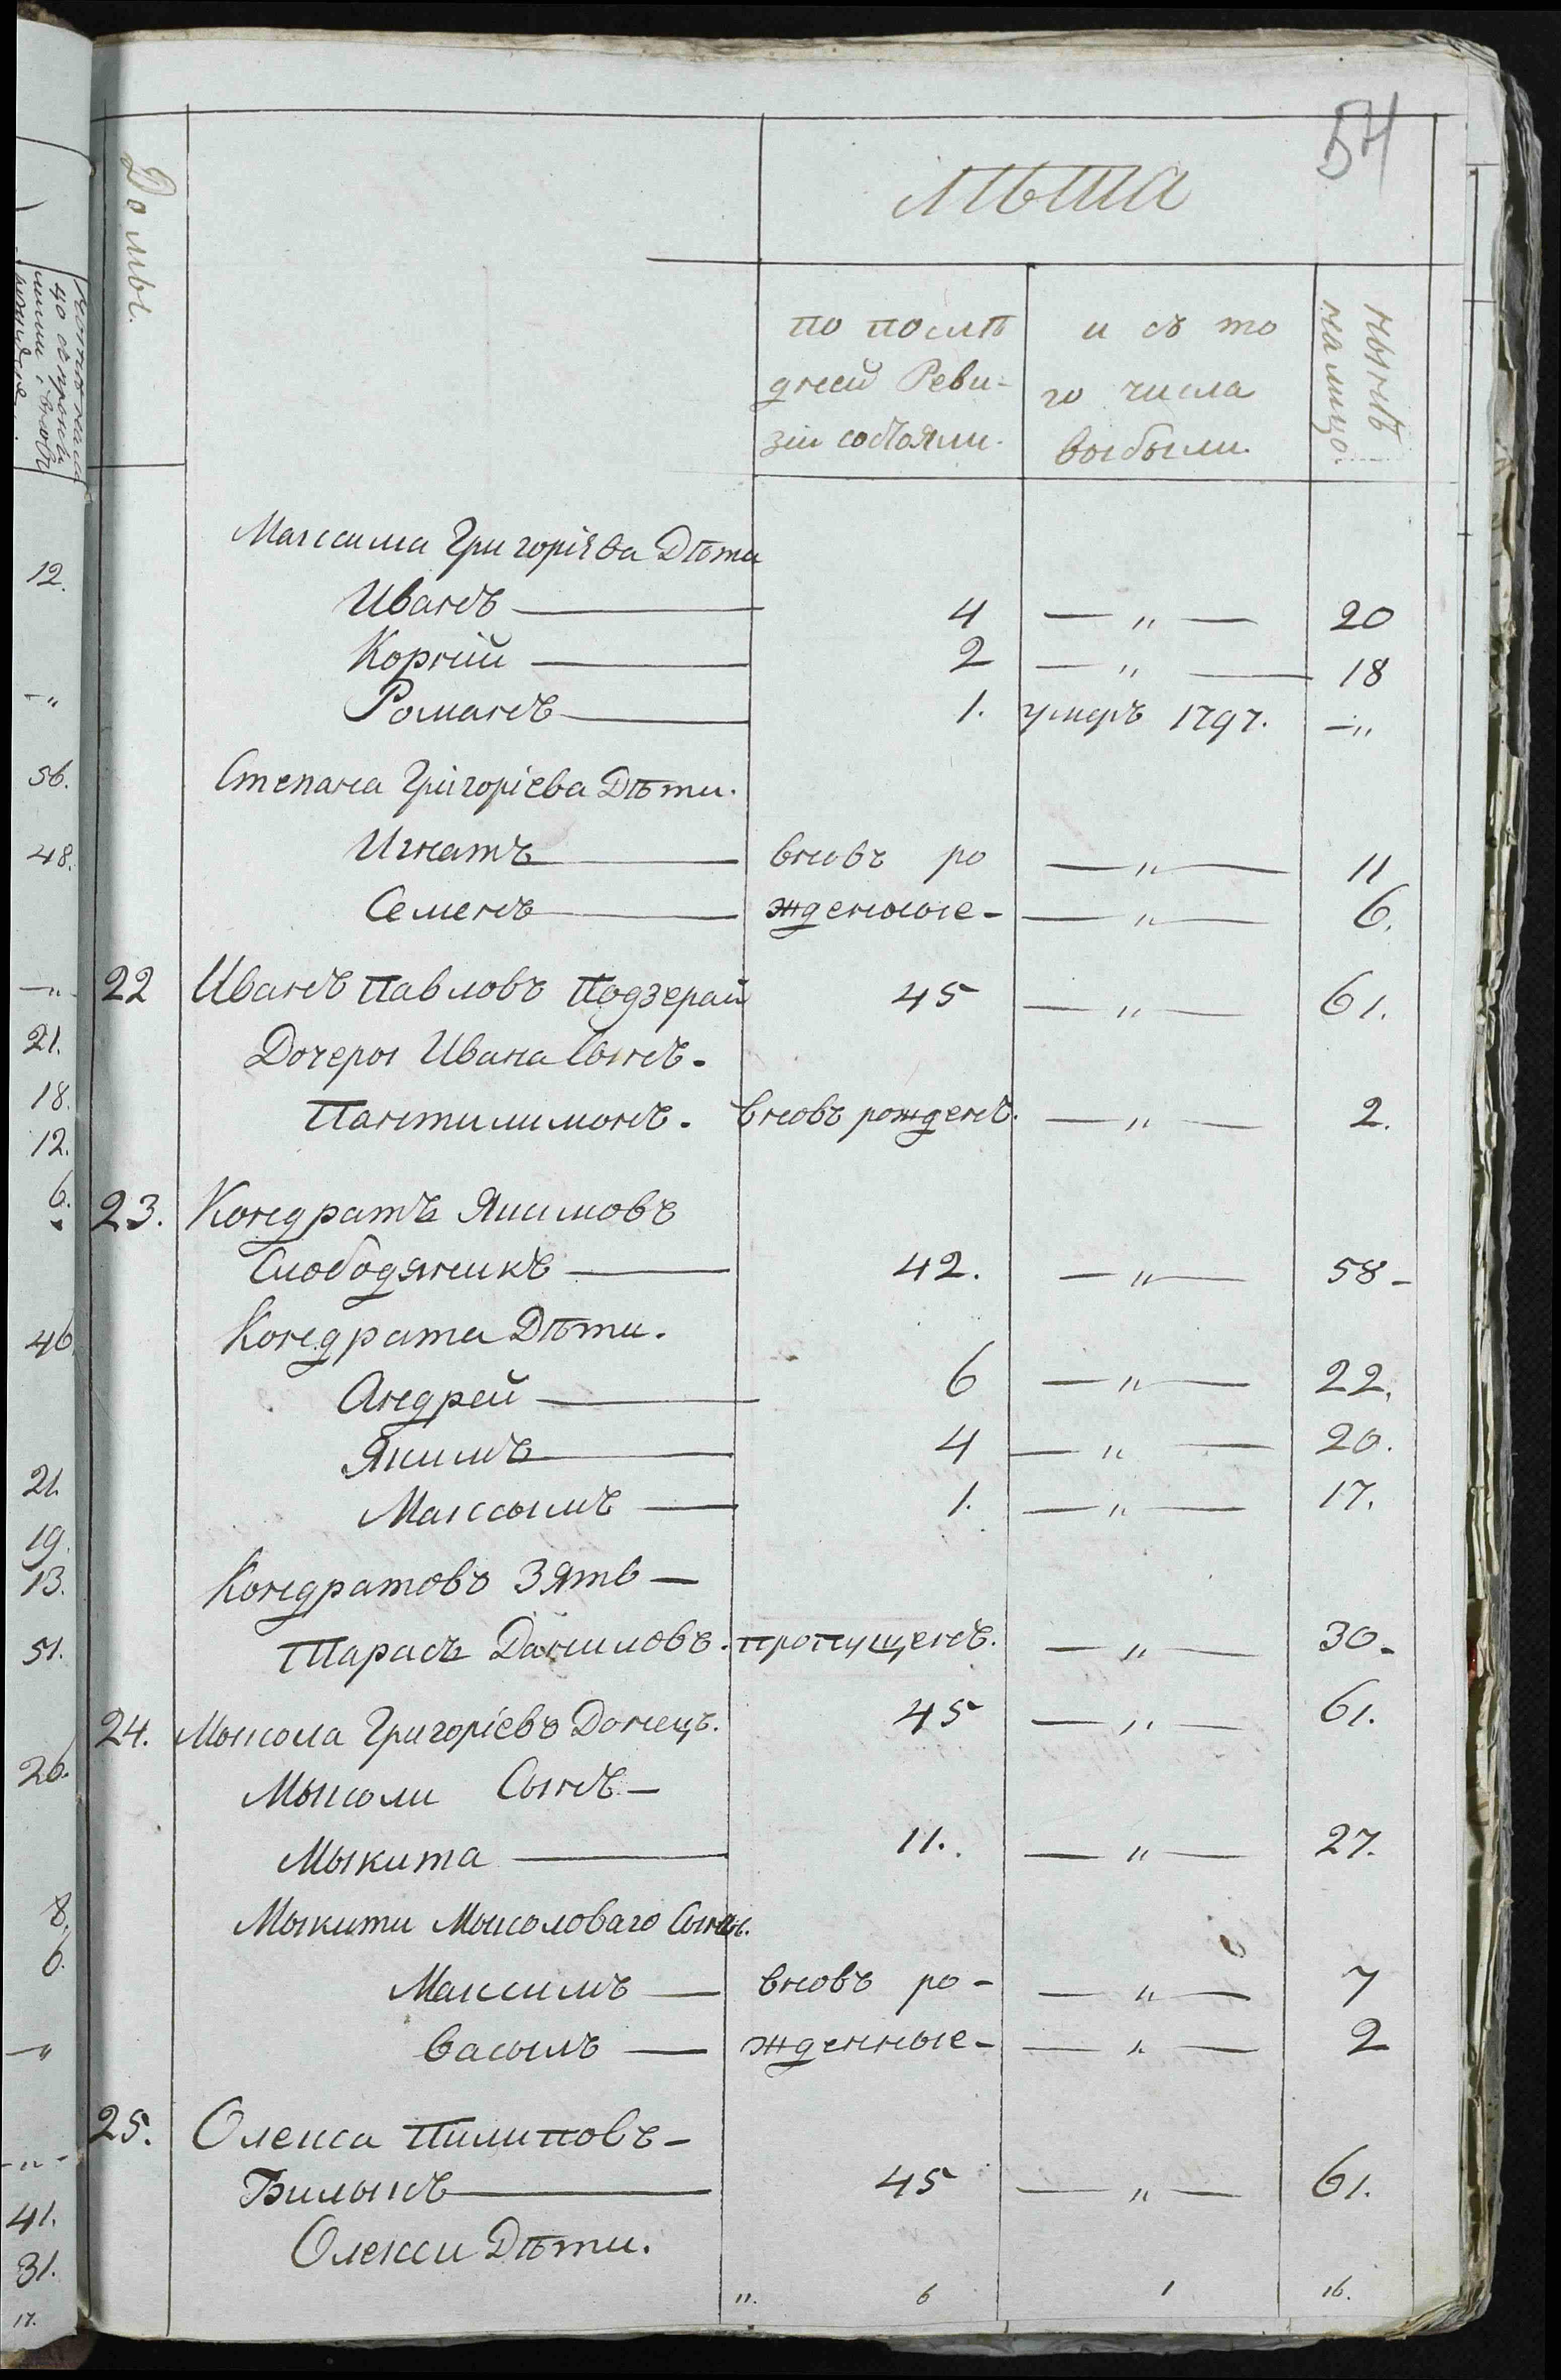 54
Домы.
лѣта
по послѣ
дней Реви-
зіи состояли.
и съ то
го числа
выбыли.
нынѣ
на лицо.
Максима Григоріева Дѣти
Иванъ — 4 — " — 20
Корній — 2 — " — 18
Романъ — 1. умеръ 1797. — "
Степана Григоріева Дѣти.
Игнатъ — вновъ ро — " — 11
Семенъ — жденные — — " — 6.
22 Иванъ Павловъ Подзерай 45 — " — 61.
Дочеры Ивана Сынъ.
Пантилимонъ. вновъ рожденъ. — " — 2.
23. Кондратъ Якимовъ
Слободяникъ — 42. — " — 58 -
Кондрата Дѣти.
Андрей — 6 — " — 22.
Якимъ — 4 — " — 20.
Максымъ — 1. — " — 17.
Кондратовъ Зять —
Тарасъ Даниловъ. пропущенъ. — " — 30 -
24. Мыкола Григоріевъ Донецъ. 45 — " — 61.
Мыколи Сынъ —
Мыкита — 11. — " — 27.
Мыкити Мыколоваго Сыны.
Максимъ — вновъ ро- — " — 7
Васыль — жденные — — " — 2
25. Олекса Пилиповъ —
Билыкъ — 45 — " — 61.
Олекси Дѣти.
11. 6 1 16.
12.
— "
56.
48.
— "
21.
18.
12.
6.
46.
21.
19.
13.
51.
26.
8.
6.
— "
— " —
41.
31.
17.